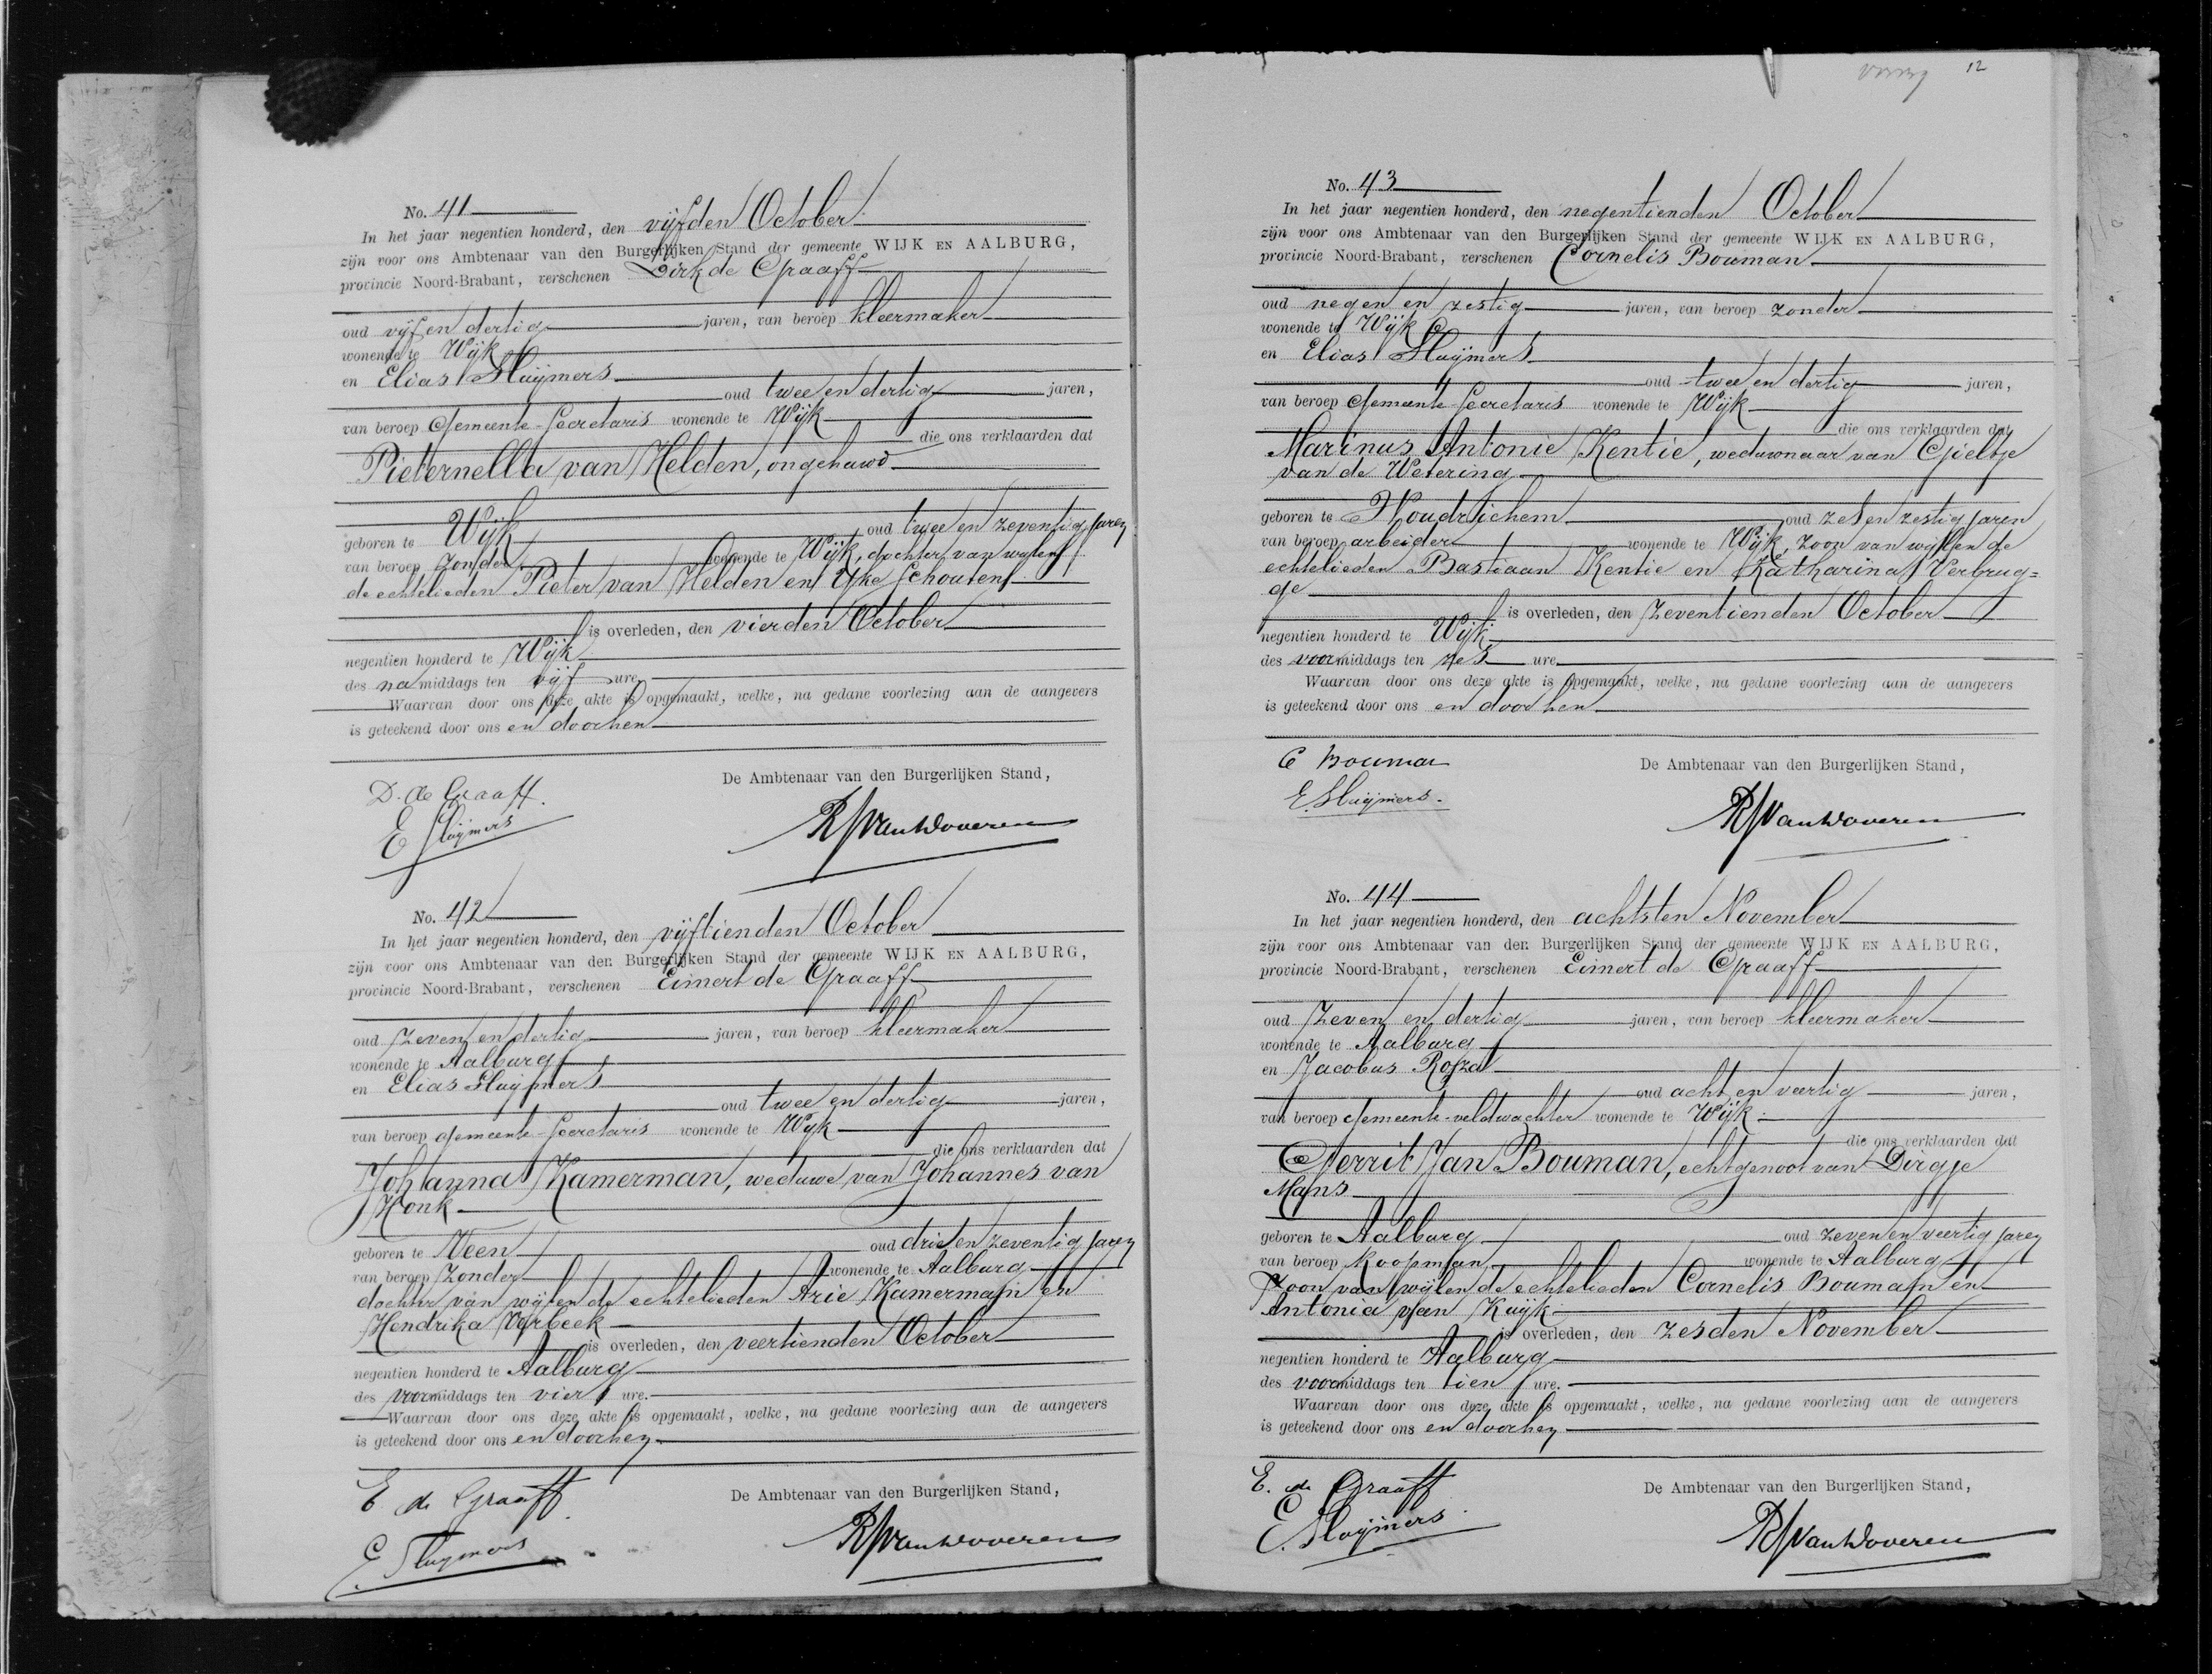 No. 41
In het jaar negentien honderd, den vijfden October
zijn voor ons Ambtenaar van den Burgerlijken Stand der gemeente WIJK EN AALBURG,
provincie Noord-Brabant, verschenen Dirk de Graaff
oud vijf en dertig jaren, van beroep kleermaker
wonende te Wijk
en Elias Sluijmers
oud twee en dertig jaren,
van beroep Gemeente-Secretaris wonende te Wijk
die ons verklaarden dat
Pieternella van Helden, ongehuwd
geboren te Wijk oud twee en zeventig jaren
van beroep zonder wonende te Wijk, dochter van wijlen
de echtelieden Pieter van Helden en Ijke Schouten
is overleden, den vierden October
negentien honderd te Wijk
des namiddags ten vijf ure.
Waarvan door ons deze akte is opgemaakt, welke, na gedane voorlezing aan de aangevers
is geteekend door ons en door hen
De Ambtenaar van den Burgerlijken Stand,
D. de Graaff.
E Sluijmers
RJ van Woveren
No. 42
In het jaar negentien honderd, den vijftienden October
zijn voor ons Ambtenaar van den Burgerlijken Stand der gemeente WIJK EN AALBURG,
provincie Noord-Brabant, verschenen Eimert de Graaff
oud zeven en dertig jaren, van beroep kleermaker
wonende te Aalburg
en Elias Sluijmers
oud twee en dertig jaren,
van beroep gemeente-Secretaris wonende te Wijk
die ons verklaarden dat
Johanna Kamerman, weduwe van Johannes van
Honk
geboren te Veen oud drie en zeventig jaren
van beroep zonder wonende te Aalburg
dochter van wijlen de echtelieden Arie Kamerman en
Hendrika Verbeek
is overleden, den veertienden October
negentien honderd te Aalburg
des voormiddags ten vier ure.
Waarvan door ons deze akte is opgemaakt, welke, na gedane voorlezing aan de aangevers
is geteekend door ons en door hen
De Ambtenaar van den Burgerlijken Stand,
E. de Graaff
E. Sluijmers
RJ van Woveren
12
No. 43
In het jaar negentien honderd, den negentienden October
zijn voor ons Ambtenaar van den Burgerlijken Stand der gemeente WIJK EN AALBURG,
provincie Noord-Brabant, verschenen Cornelis Bouman
oud negen en zestig jaren, van beroep zonder
wonende te Wijk
en Elias Sluijmers
oud twee en dertig jaren,
van beroep Gemeente-Secretaris wonende te Wijk
die ons verklaarden dat
Marinus Antonie Kentie, weduwnaar van Gieltje
van de Wetering
geboren te Woudrichem oud zes en zestig jaren
van beroep arbeider wonende te Wijk, zoon van wijlen de
echtelieden Bastiaan Kentie en Katharina Verbrug=
ge
is overleden, den zeventienden October
negentien honderd te Wijk
des voormiddags ten zes ure.
Waarvan door ons deze akte is opgemaakt, welke, na gedane voorlezing aan de aangevers
is geteekend door ons en door hen
De Ambtenaar van den Burgerlijken Stand,
C Bouman
E. Sluijmers.
RJ van Woveren
No. 44
In het jaar negentien honderd, den achtsten November
zijn voor ons Ambtenaar van den Burgerlijken Stand der gemeente WIJK EN AALBURG,
provincie Noord-Brabant, verschenen Eimert de Graaff
oud zeven en dertig jaren, van beroep kleermaker
wonende te Aalburg
en Jacobus Roza
oud acht en veertig jaren,
van beroep gemeente-veldwachter wonende te Wijk
die ons verklaarden dat
Gerrit Jan Bouman, echtgenoot van Dirgje
Mans
geboren te Aalburg oud zeven en veertig jaren
van beroep koopman wonende te Aalburg
zoon van wijlen de echtelieden Cornelis Bouman en
Antonia van Kuijk
is overleden, den zesden November
negentien honderd te Aalburg
des voormiddags ten tien ure.
Waarvan door ons deze akte is opgemaakt, welke, na gedane voorlezing aan de aangevers
is geteekend door ons en door hen
De Ambtenaar van den Burgerlijken Stand,
E. de Graaff
E. Sluijmers.
RJ van Woveren